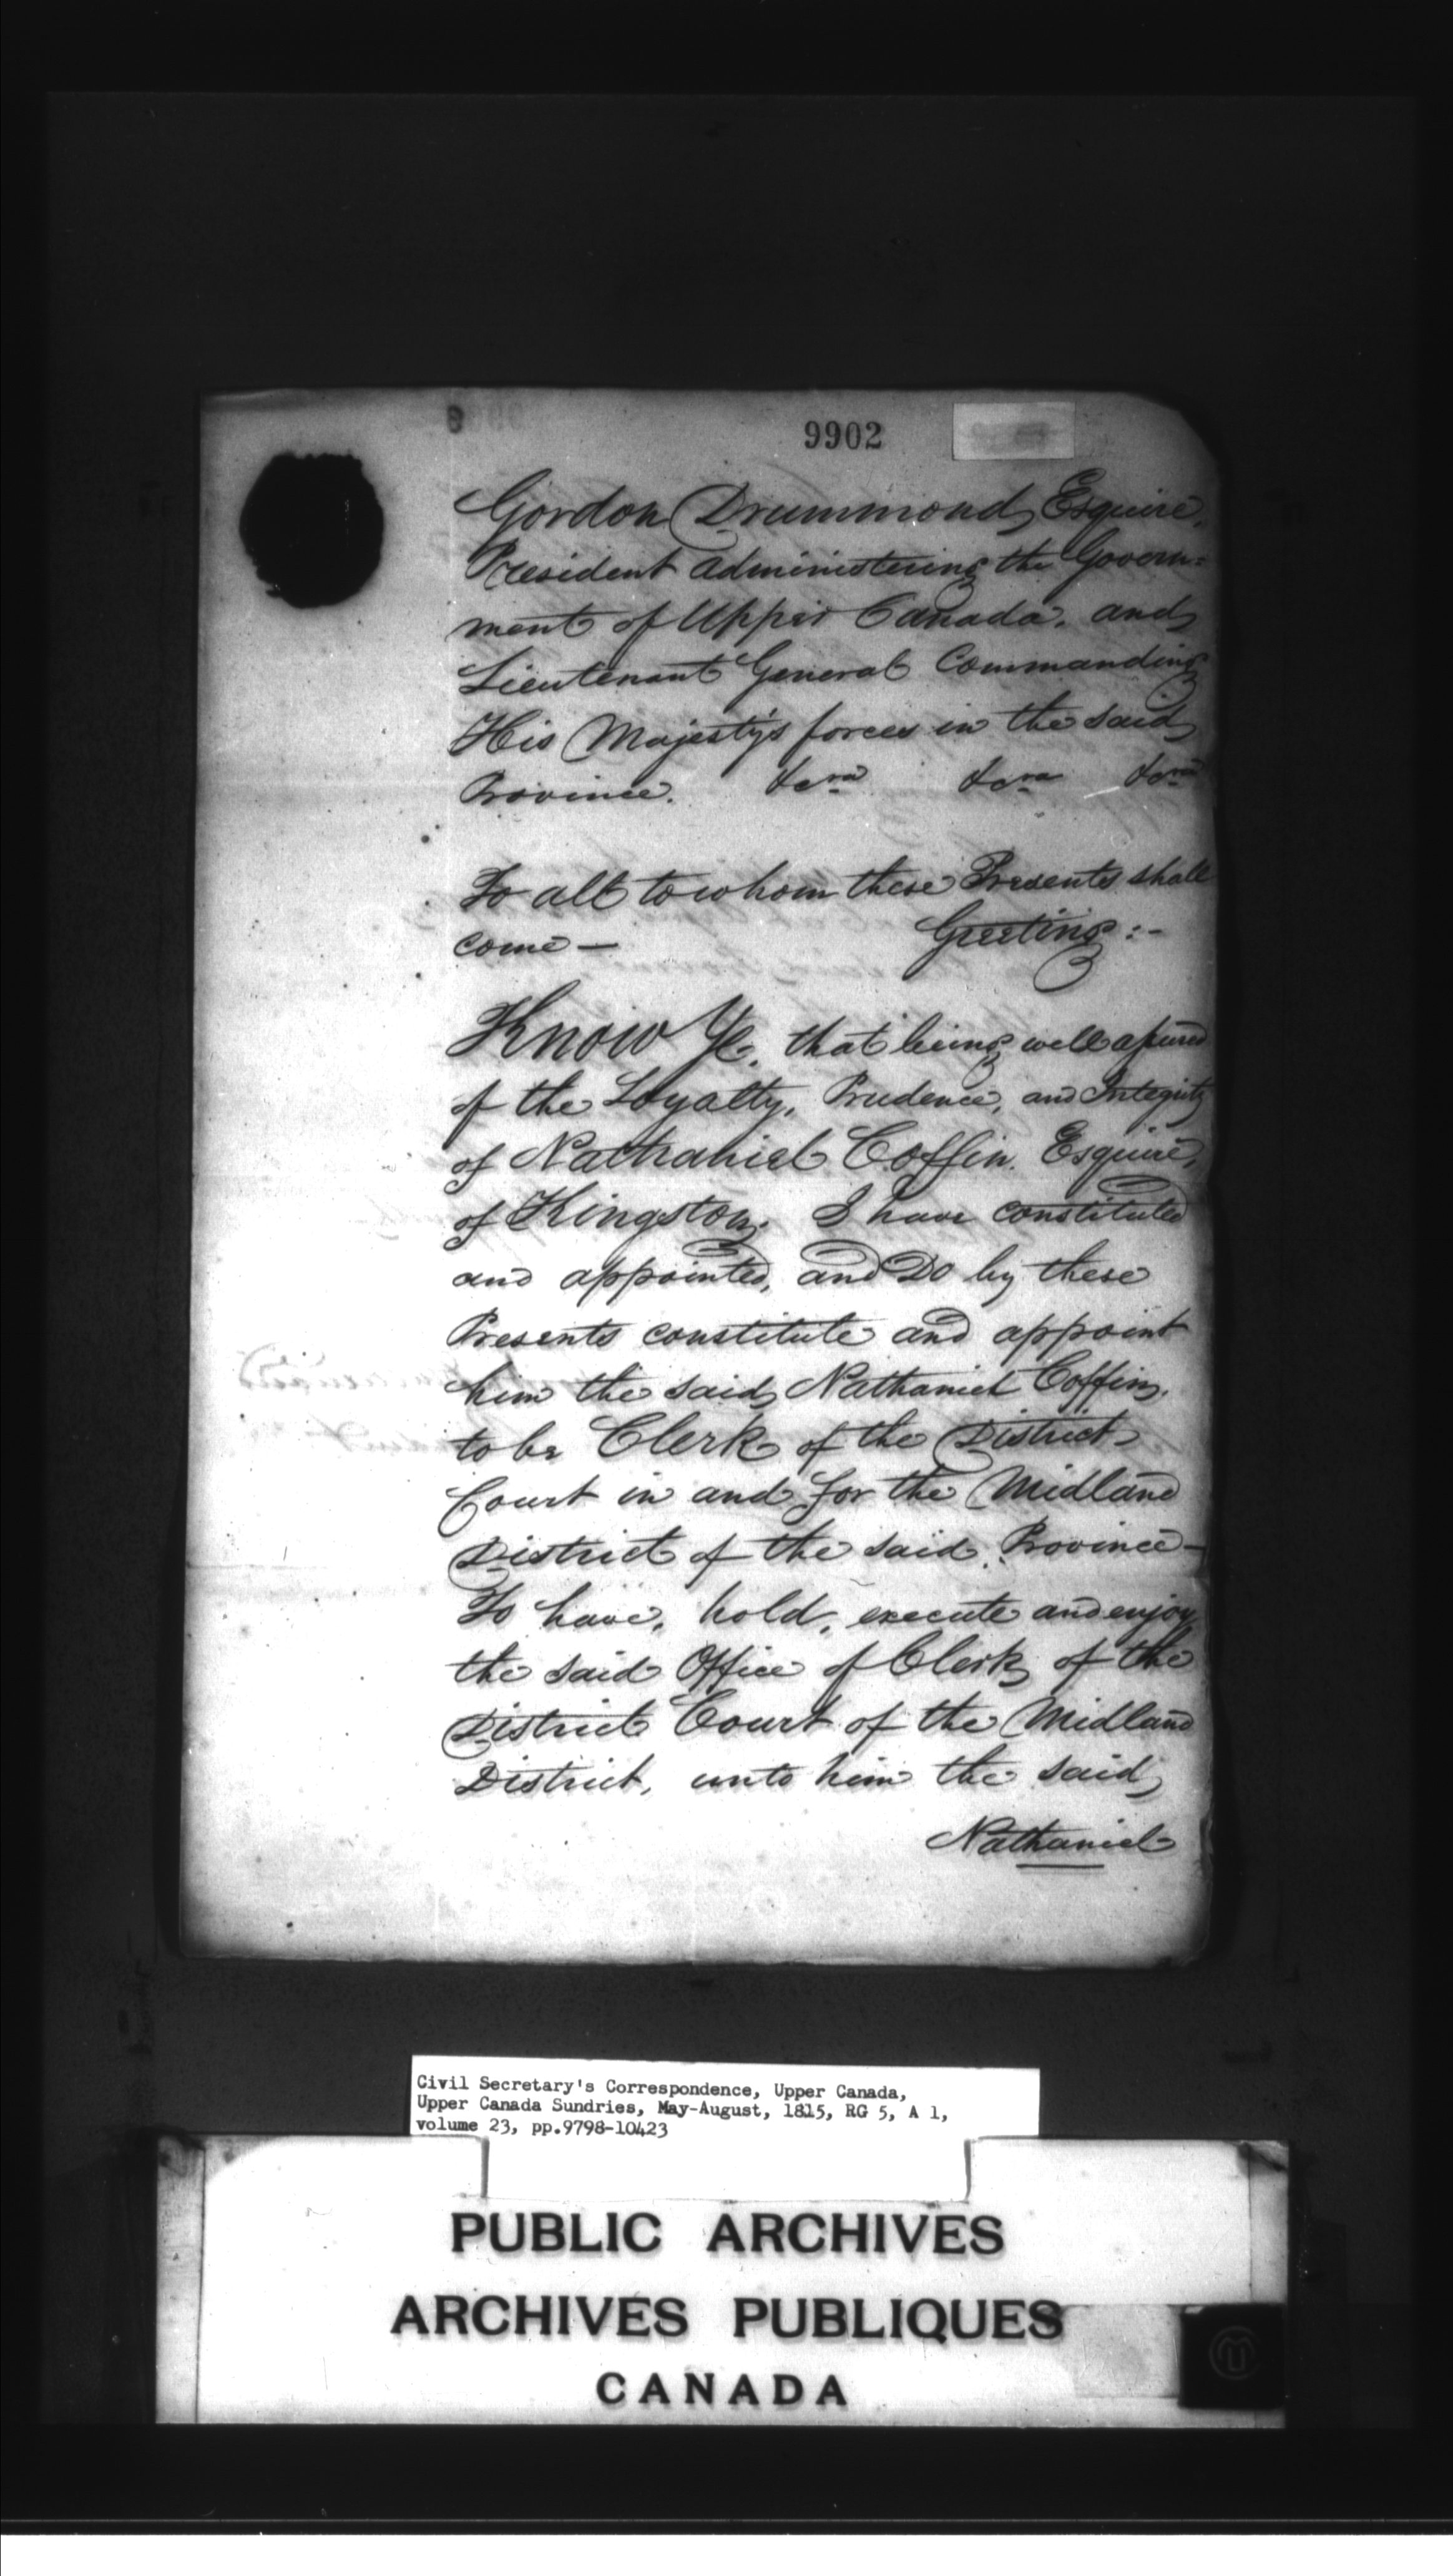 9902
Gordon Drummond, Esquire,
President administering the Govern=
ment of Upper Canada, and
Lieutenant General Commanding
His Majesty's forces in the said
Province. &cra &cra &cra
To all to whom these Presents shall
come — Greeting :-
Know Ye, that being well assured
of the Loyalty, Prudence, and Integrity
of Nathaniel Coffin, Esquire,
of Kingston, I have constituted
and appointed, and Do by these
Presents constitute and appoint
him the said Nathaniel Coffin,
to be Clerk of the District
Court in and for the Midland
District of the said Province —
To have, hold, execute and enjoy
the said Office of Clerk of the
District Court of the Midland
District, unto him the said
Nathaniel
Civil Secretary's Correspondence, Upper Canada,
Upper Canada Sundries, May-August, 1815, RG 5, A 1,
volume 23, pp.9798-10423
PUBLIC ARCHIVES
ARCHIVES PUBLIQUES
CANADA